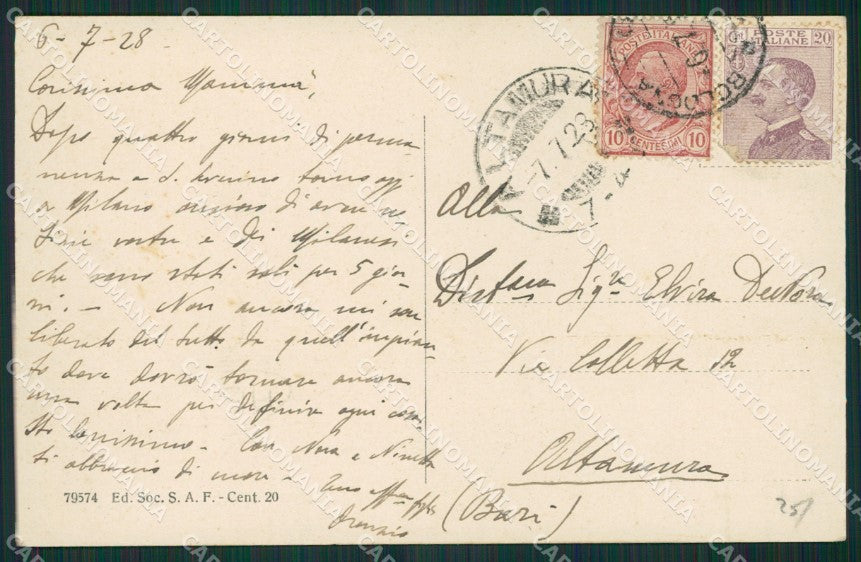 6-7-28
Carissima Mammà,
Dopo quattro giorni di perma-
nenza a S. torno oggi
a Milano ansioso di avere no-
tizie vostre e dei Milanesi
che sono stati soli per 5 gior-
ni. - Non ancora mi son
liberato del tutto da quell'impian-
to dove dovrò tornare ancora
una volta per definire ogni cosa.
Sto benissimo - Con Nora e Ninetta
ti abbraccio di cuore - tuo aff.mo figlio
Oronzio
79574 Ed. Soc. S. A. F. - Cent. 20
POSTE ITALIANE
10 CENTESIMI 10
POSTE ITALIANE 20
BOLOGNA
ALTAMURA
7.7.28
Alla
Dista Sig.ra Elvira DeNora
Via Colletta 12
Altamura
(Bari)
25/
CARTOLINOMANIA